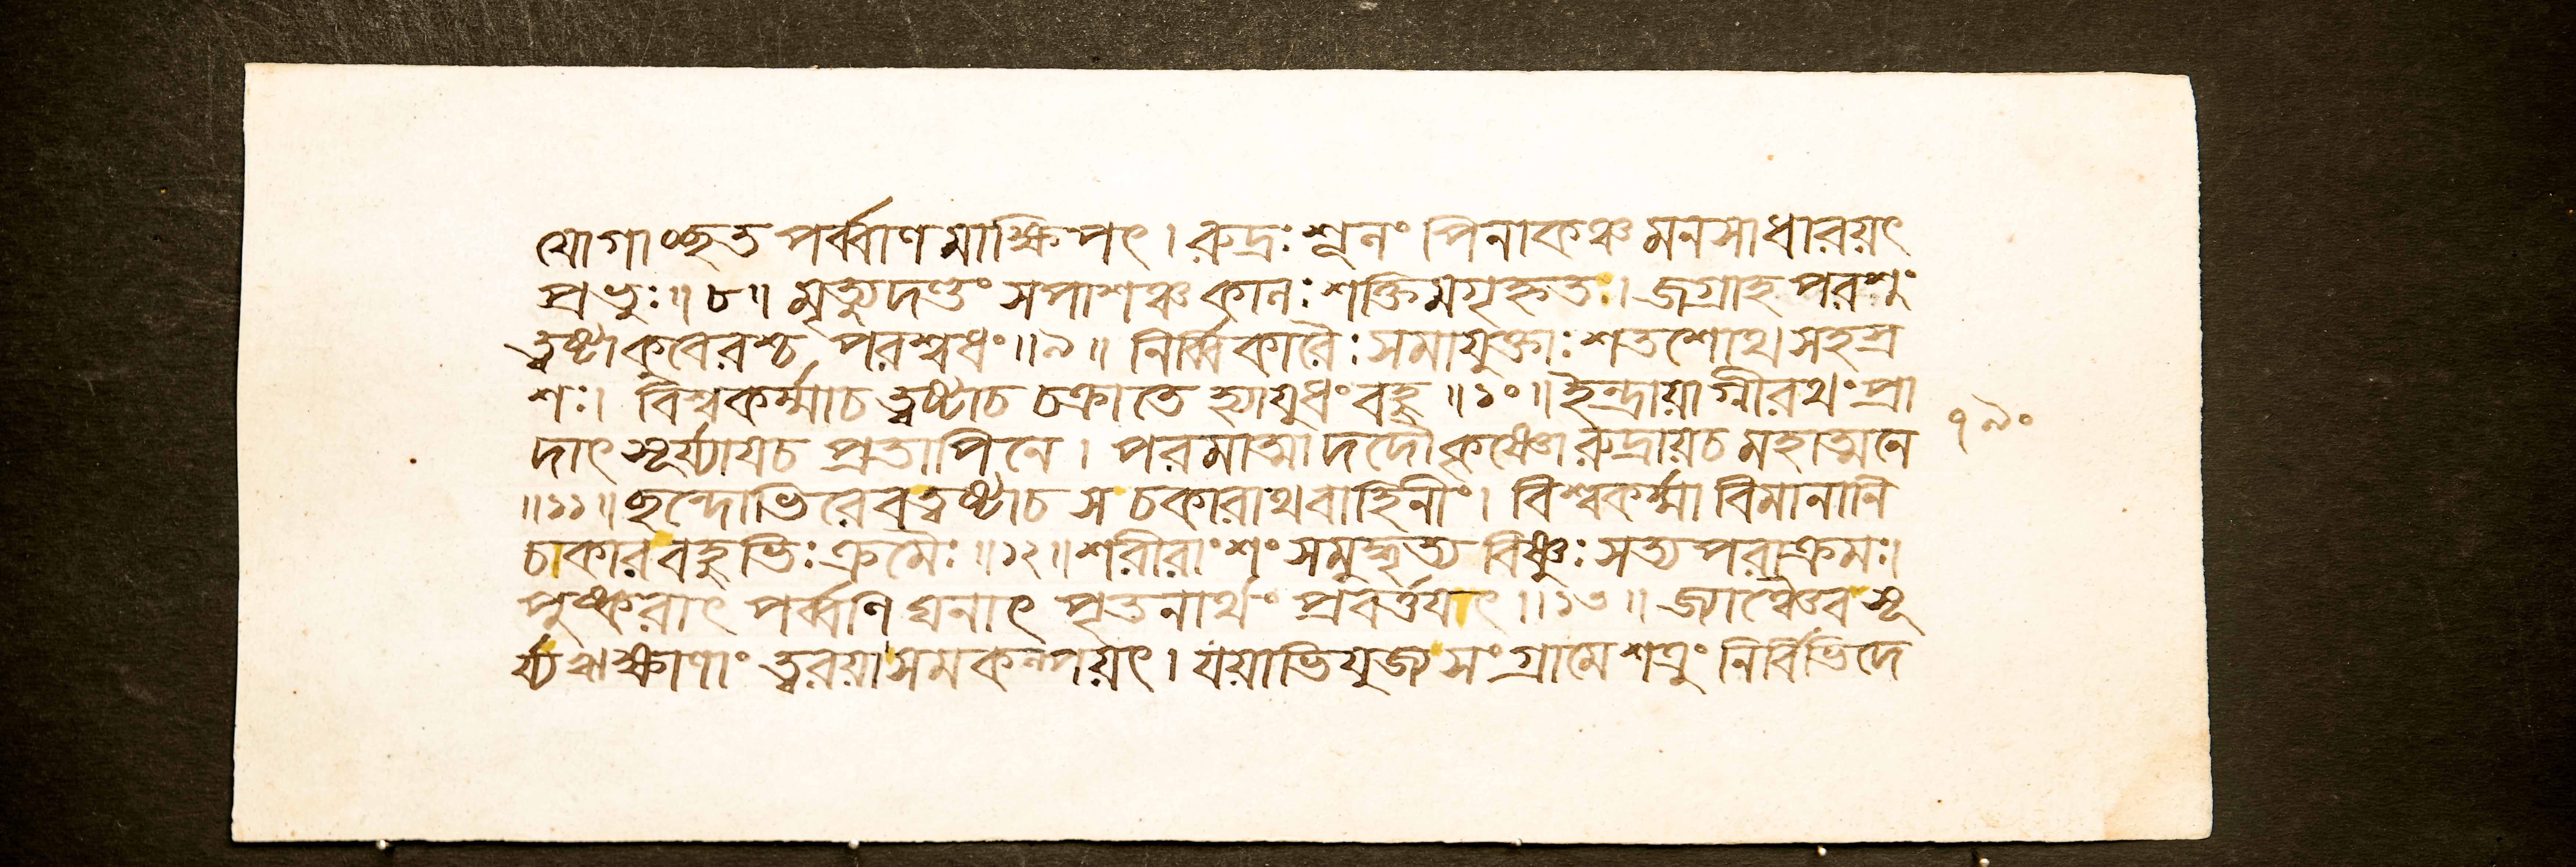 যোগাংচ্ছত পর্ব্বাণমাক্ষিপৎ। রুদ্রঃ শূলং পিনাকঞ্চ মনসাধারয়ৎ
প্রভুঃ॥৮॥ মৃত্যুদণ্ডং সপাশঞ্চ কালঃ শক্তিমগৃহ্নত। জগ্রাহ পরশুং
ত্বষ্টা কুবেরশ্চ পরশ্বধং॥৯॥ নির্ব্বিকারৈঃ সমাযুক্তাঃ শতশোথ সহস্র
শঃ। বিশ্বকর্ম্মাচ ত্বষ্টাচ চক্রাতে হ্যাযুধং বহু॥১০॥ ইন্দ্রায়াগ্নীরথং প্রা
দাৎ সূর্য্যাযচ প্রতাপিনে। পরমাত্মা দদৌ কৃষ্ণো রুদ্রায়চ মহাত্মনে
॥১১॥ ছন্দোভিরেব ত্বষ্টাচ স চকারাথ বাহিনীং। বিশ্বকর্ম্মা বিমানানি
চাকার বহুভিঃ ক্রমৈঃ॥১২॥ শরীরাংশং সমুদ্ধৃত্য বিষ্ণুঃ সত্য পরাক্রমঃ।
পুষ্করাৎ পর্ব্বণি ঘনাৎ পৃতনার্থং প্রবর্ত্তযৎ॥১৩॥ জ্যাঞ্চৈব সূ
র্য্য ত্বরয়া সমকল্পয়ৎ। যয়াভিযুজ্য সংগ্রামে শত্রুং নির্বিভিদে
৭৯০